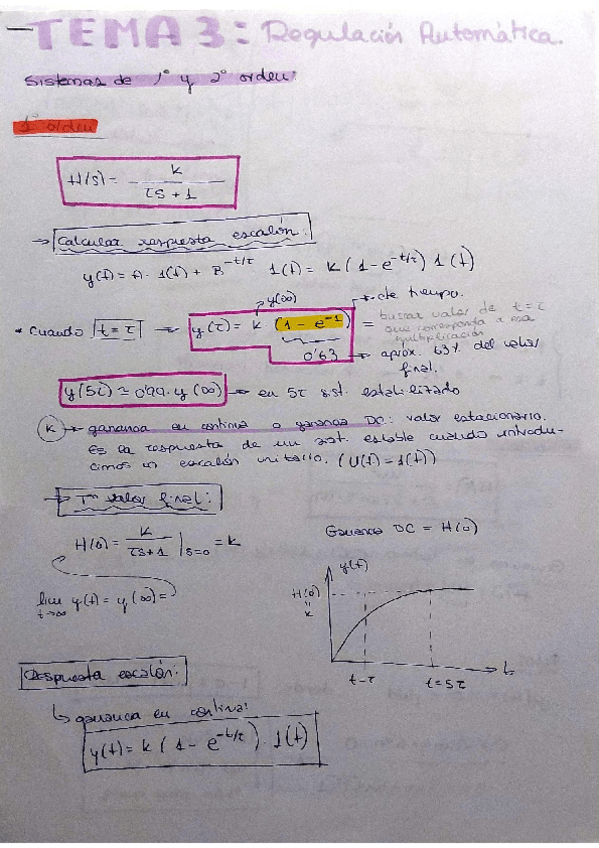 TEMA 3: Regulación Automática.
Sistemas de 1º y 2º orden:
1º orden
H(s) = K / (τs + 1)
→ Calcular respuesta escalón:
y(t) = A · 1(t) + B^(-t/τ) 1(t) = K (1 - e^(-t/τ)) 1(t)
y(∞) → cte tiempo.
* Cuando t = τ → y(τ) = K (1 - e^(-1)) = buscar valor de t = τ que corresponda a esa multiplicación
0'63 → aprox. 63% del valor final.
y(5τ) ≃ 0'99 · y(∞) → en 5τ sist. estabilizado
K → ganancia en continua o ganancia DC: valor estacionario.
Es la respuesta de un sist. estable cuando introdu-
cimos un escalón unitario. (U(t) = 1(t))
→ Tª valor final:
H(0) = K / (τs + 1) |s=0 = K
Ganancia DC = H(0)
lim t→∞ y(t) = y(∞) =
y(t)
H(0)
=
K
t-τ t=5τ
t
Respuesta escalón:
↳ ganancia en continua:
y(t) = K (1 - e^(-t/τ)) 1(t)